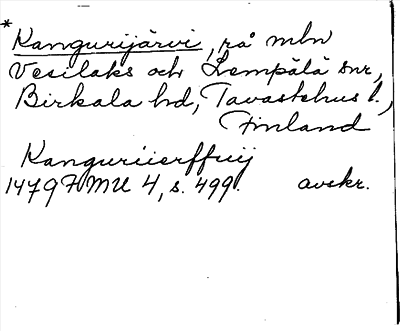 *
Kangurijärvi, rå mln
Vesilaks och Lempälä snr,
Birkala hd, Tavastehus l.,
Finland
Kanguriierffuij
1479 FMU 4, s. 499. avskr.